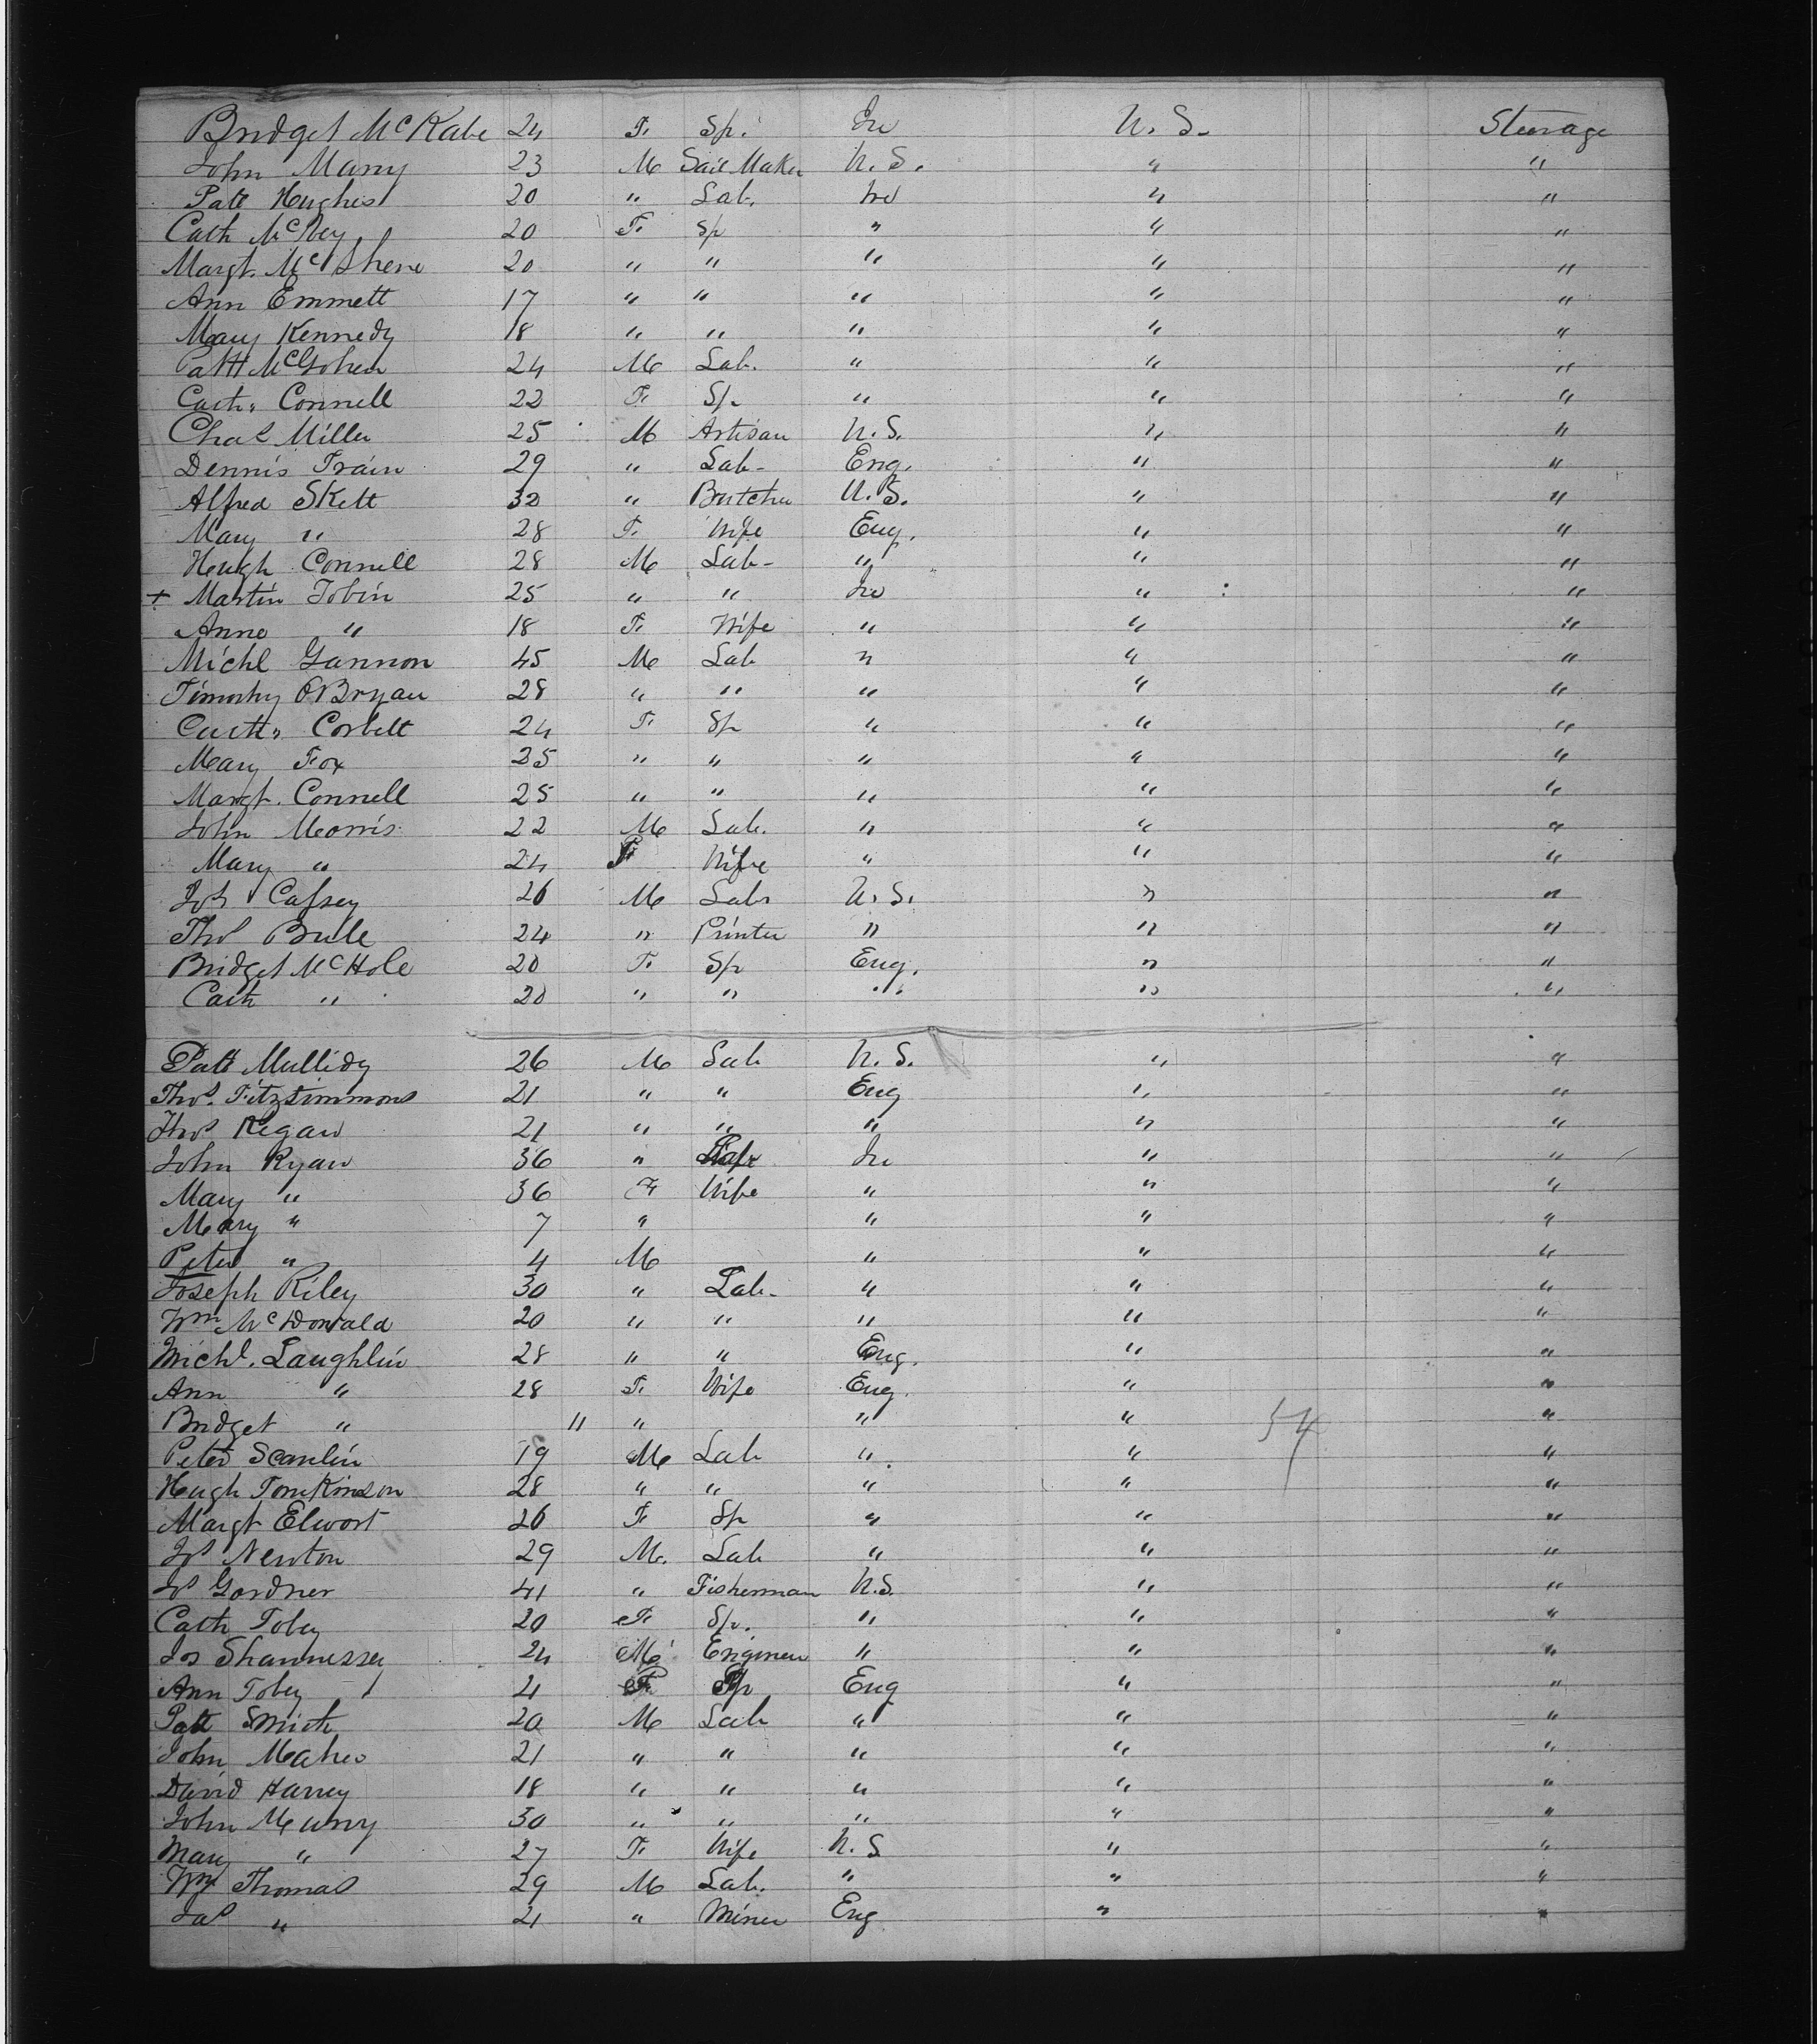 Bridget McKabe 24 F. Sp. Ire U. S. Steerage
John Marry 23 M Sail Maker U. S. " "
Patt Hughes 20 " Lab. Ire " "
Cath McVey 20 F. Sp " " "
Margt. McShene 20 " " " " "
Ann Emmett 17 " " " " "
Mary Kennedy 18 " " " " "
Patt McGohen 24 M Lab. " " "
Cath. Connell 22 F. Sp. " " "
Chas Miller 25 M Artisan U. S. " "
Dennis Train 29 " Lab. Eng. " "
Alfred Skett 32 " Butcher U. S. " "
Mary " 28 F. Wife Eng. " "
Hugh Connell 28 M Lab. " " "
+ Martin Tobin 25 " " Ire " "
Anne " 18 F. Wife " " "
Michl Gannon 45 M Lab " " "
Timothy O'Bryan 28 " " " " "
Cath. Corbett 24 F. Sp " " "
Mary Fox 25 " " " " "
Margt. Connell 25 " " " " "
John Morris 22 M Lab. " " "
Mary " 24 F Wife " " "
Jos Cassey 26 M Labr U. S. " "
Thos Brule 24 " Printer " " "
Bridget McHole 20 F. Sp Eng. " "
Cath " 20 " " " " "
Patt Mullidy 26 M Lab U. S. " "
Thos. Fitzsimmons 21 " " Eng " "
Thos Regan 21 " " " " "
John Ryan 36 " Labr Ire " "
Mary " 36 F Wife " " "
Mary " 7 " " " "
Peter " 4 M " " "
Joseph Riley 30 " Lab. " " "
Wm McDonald 20 " " " " "
Michl. Laughlin 28 " " Eng. " "
Ann " 28 F. Wife Eng. " "
Bridget " 11 " " " "
Peter Scanlin 19 M Lab " " "
54
Hugh Tomkinson 28 " " " " "
Margt Elwort 26 F. Sp " " "
Jos Newton 29 M. Lab " " "
Js Gordner 41 " Fisherman U.S. " "
Cath Tobey 20 F. Sp. " " "
Jos Shannessey 24 M Engineer " " "
Ann Tobey 21 F. Sp Eng " "
Patt Smith 20 M Lab " " "
John Maher 21 " " " " "
David Harvey 18 " " " " "
John Murry 30 " " " " "
Mary " 27 F. Wife U. S " "
Wm Thomas 29 M Lab. " " "
Jas " 21 " Miner Eng " "